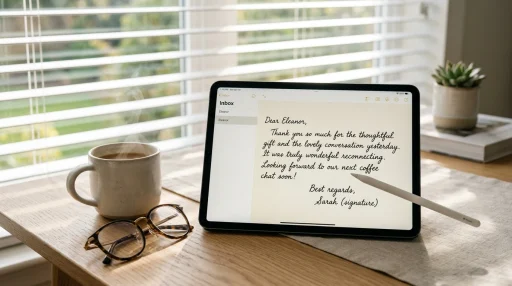 Inbox
Dear Eleanor,
Thank you so much for the thoughtful
gift and the lovely conversation yesterday.
It was truly wonderful reconnecting.
Looking forward to our next coffee
chat soon!
Best regards,
Sarah (signature)